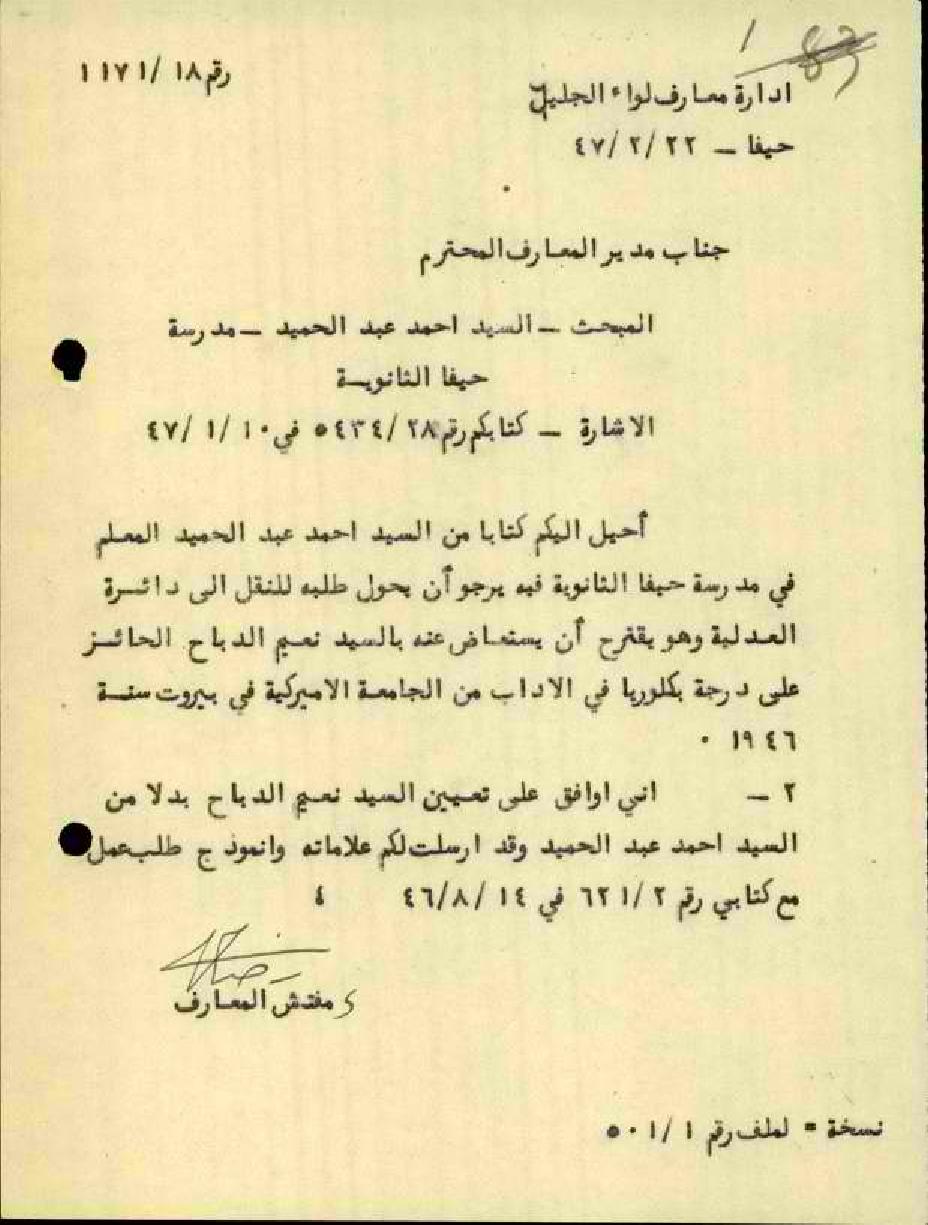 رقم ١٨ /١١٧١
ادارة معارف لواء الجليل
حيفا – ٢٢ /٢ /٤٧
جناب مدير المعارف المحترم
المبحث – السيد احمد عبد الحميد – مدرسة
حيفا الثانوية
الاشارة – كتابكم رقم ٢٨ /٥٤٣٤ في ١٠ /١ /٤٧
أحيل اليكم كتابا من السيد احمد عبد الحميد المعلم
في مدرسة حيفا الثانوية فيه يرجو أن يحول طلبه للنقل الى دائرة
العدلية وهو يقترح أن يستعاض عنه بالسيد نعيم الدباح الحائز
على درجة بكلوريا في الاداب من الجامعة الاميركية في بيروت سنة
١٩٤٦ ٠
٢ – اني اوافق على تعيين السيد نعيم الدباح بدلا من
السيد احمد عبد الحميد وقد ارسلت لكم علاماته وانموذج طلب عمل
مع كتابي رقم ٢ /٦٢١ في ١٤ /٨/ ٤٦ ٤
مفتش المعارف
نسخة = لملف رقم ١ /٥٠١